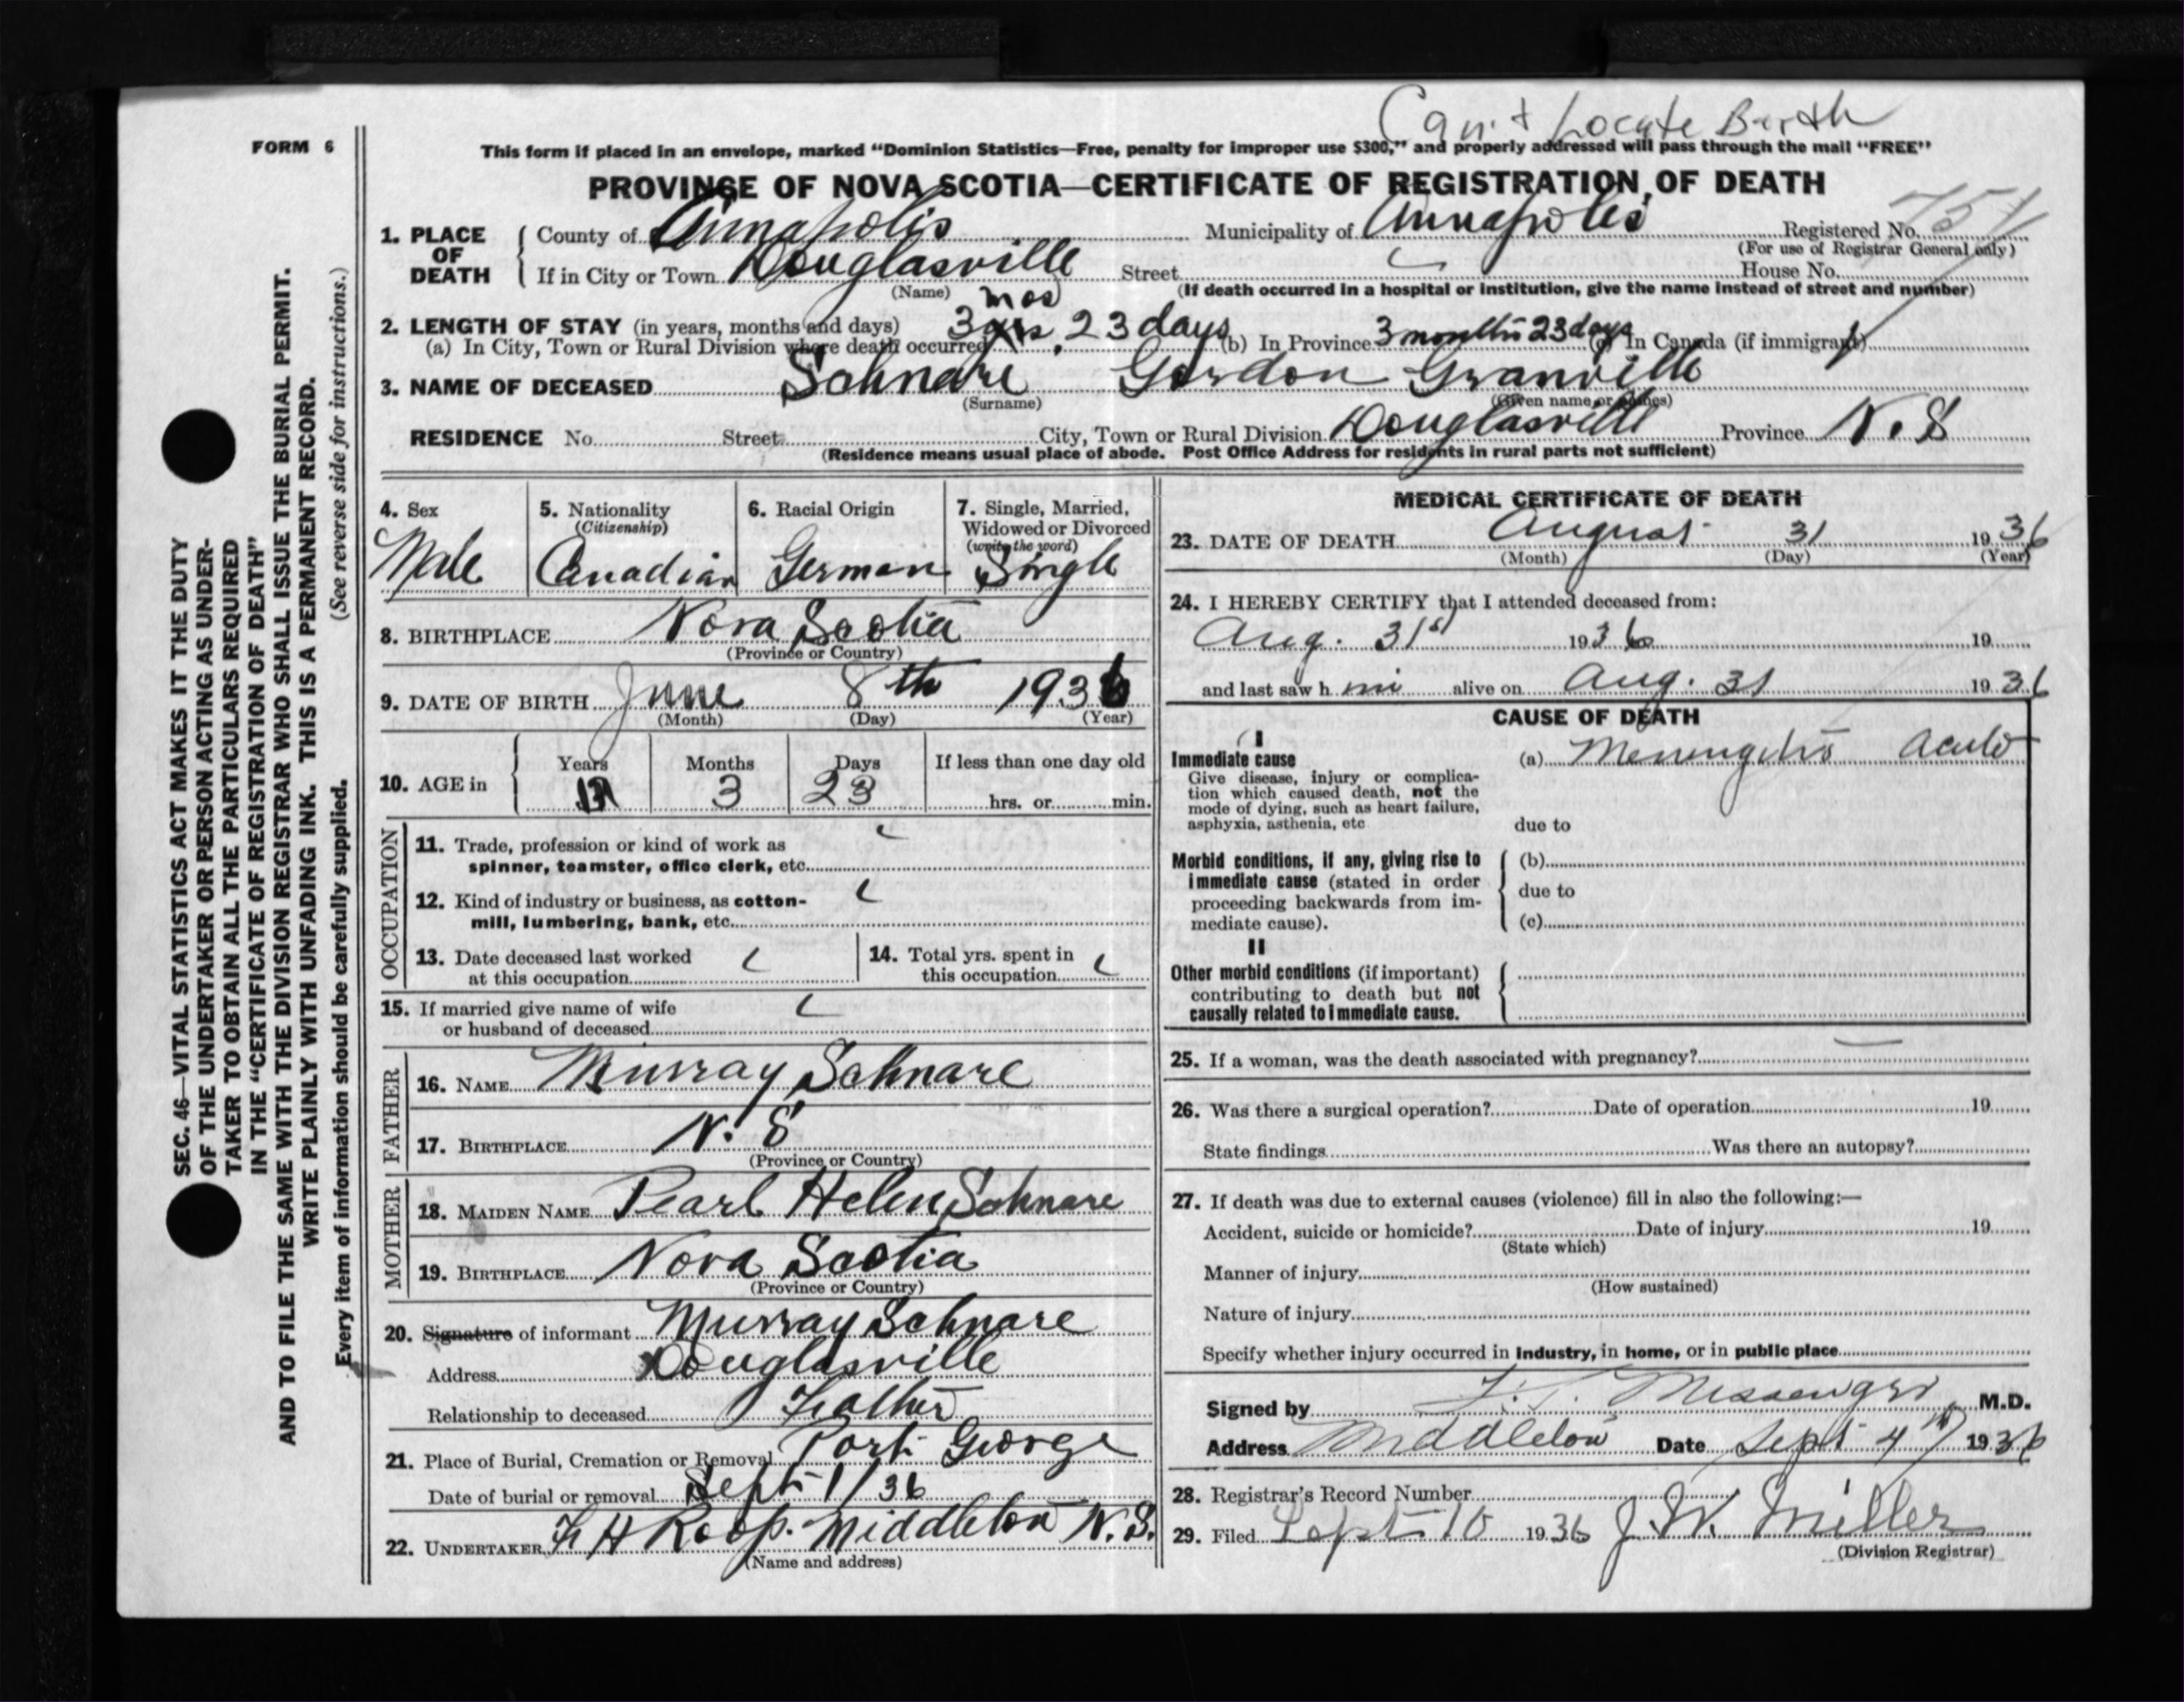 Can't Locate Birth
FORM 6
This form if placed in an envelope, marked “Dominion Statistics—Free, penalty for improper use $300,” and properly addressed will pass through the mail “FREE”
PROVINCE OF NOVA SCOTIA—CERTIFICATE OF REGISTRATION OF DEATH
1. PLACE OF DEATH County of Annapolis Municipality of Annapolis Registered No. 751
(For use of Registrar General only)
If in City or Town Douglasville Street House No.
(Name) (If death occurred in a hospital or institution, give the name instead of street and number)
2. LENGTH OF STAY (in years, months and days) 3 mos 23 days
(a) In City, Town or Rural Division where death occurred (b) In Province 3 months 23 days (c) In Canada (if immigrant)
3. NAME OF DECEASED Schnare Gordon Granville
(Surname) (Given name or names)
RESIDENCE No. Street City, Town or Rural Division Douglasville Province N.S
(Residence means usual place of abode. Post Office Address for residents in rural parts not sufficient)
4. Sex Male
5. Nationality (Citizenship) Canadian
6. Racial Origin German
7. Single, Married, Widowed or Divorced (write the word) Single
8. BIRTHPLACE Nova Scotia
(Province or Country)
9. DATE OF BIRTH June 8th 1936
(Month) (Day) (Year)
10. AGE in Years Months 3 Days 23 If less than one day old hrs. or min.
OCCUPATION
11. Trade, profession or kind of work as
spinner, teamster, office clerk, etc.
12. Kind of industry or business, as cotton-
mill, lumbering, bank, etc.
13. Date deceased last worked
at this occupation
14. Total yrs. spent in
this occupation
15. If married give name of wife
or husband of deceased
FATHER
16. NAME Murray Schnare
17. BIRTHPLACE N.S
(Province or Country)
MOTHER
18. MAIDEN NAME Pearl Helen Schnare
19. BIRTHPLACE Nova Scotia
(Province or Country)
20. Signature of informant Murray Schnare
Address Douglasville
Relationship to deceased Father
21. Place of Burial, Cremation or Removal Port George
Date of burial or removal Sept 1/36
22. UNDERTAKER H Roop. Middleton N.S.
(Name and address)
MEDICAL CERTIFICATE OF DEATH
23. DATE OF DEATH August 31 1936
(Month) (Day) (Year)
24. I HEREBY CERTIFY that I attended deceased from:
Aug. 31st 1936 19
and last saw h im alive on Aug. 31 1936
CAUSE OF DEATH
I
Immediate cause (a) Meningitis Acute
Give disease, injury or complica-
tion which caused death, not the
mode of dying, such as heart failure,
asphyxia, asthenia, etc due to
Morbid conditions, if any, giving rise to (b)
immediate cause (stated in order due to
proceeding backwards from im-
mediate cause). (c)
II
Other morbid conditions (if important)
contributing to death but not
causally related to immediate cause.
25. If a woman, was the death associated with pregnancy?
26. Was there a surgical operation? Date of operation 19
State findings Was there an autopsy?
27. If death was due to external causes (violence) fill in also the following:—
Accident, suicide or homicide? Date of injury 19
(State which)
Manner of injury
(How sustained)
Nature of injury
Specify whether injury occurred in industry, in home, or in public place
Signed by Messenger M.D.
Address Middleton Date Sept 4th 1936
28. Registrar's Record Number
29. Filed Sept 10 1936 J. W. Miller
(Division Registrar)
SEC. 46—VITAL STATISTICS ACT MAKES IT THE DUTY
OF THE UNDERTAKER OR PERSON ACTING AS UNDER-
TAKER TO OBTAIN ALL THE PARTICULARS REQUIRED
IN THE “CERTIFICATE OF REGISTRATION OF DEATH”
AND TO FILE THE SAME WITH THE DIVISION REGISTRAR WHO SHALL ISSUE THE BURIAL PERMIT.
WRITE PLAINLY WITH UNFADING INK. THIS IS A PERMANENT RECORD.
Every item of information should be carefully supplied. (See reverse side for instructions.)